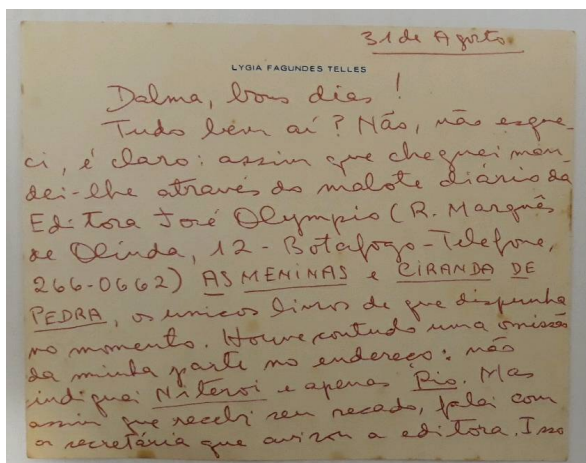 31 de Agosto
LYGIA FAGUNDES TELLES
Dalma, bons dias!
Tudo bem aí? Não, não esque-
ci, é claro: assim que cheguei man-
dei-lhe através do malote diário da
Editora José Olympio (R. Marquês
de Olinda, 12 - Botafogo - Telefone,
266-0662) AS MENINAS e CIRANDA DE
PEDRA, os unicos livros de que dispunha
no momento. Houve contudo uma omissão
da minha parte no endereço: não
indiquei Niteroi e apenas Rio. Mas
assim que recebi seu recado, falei com
a secretária que avisou a editora. Isso